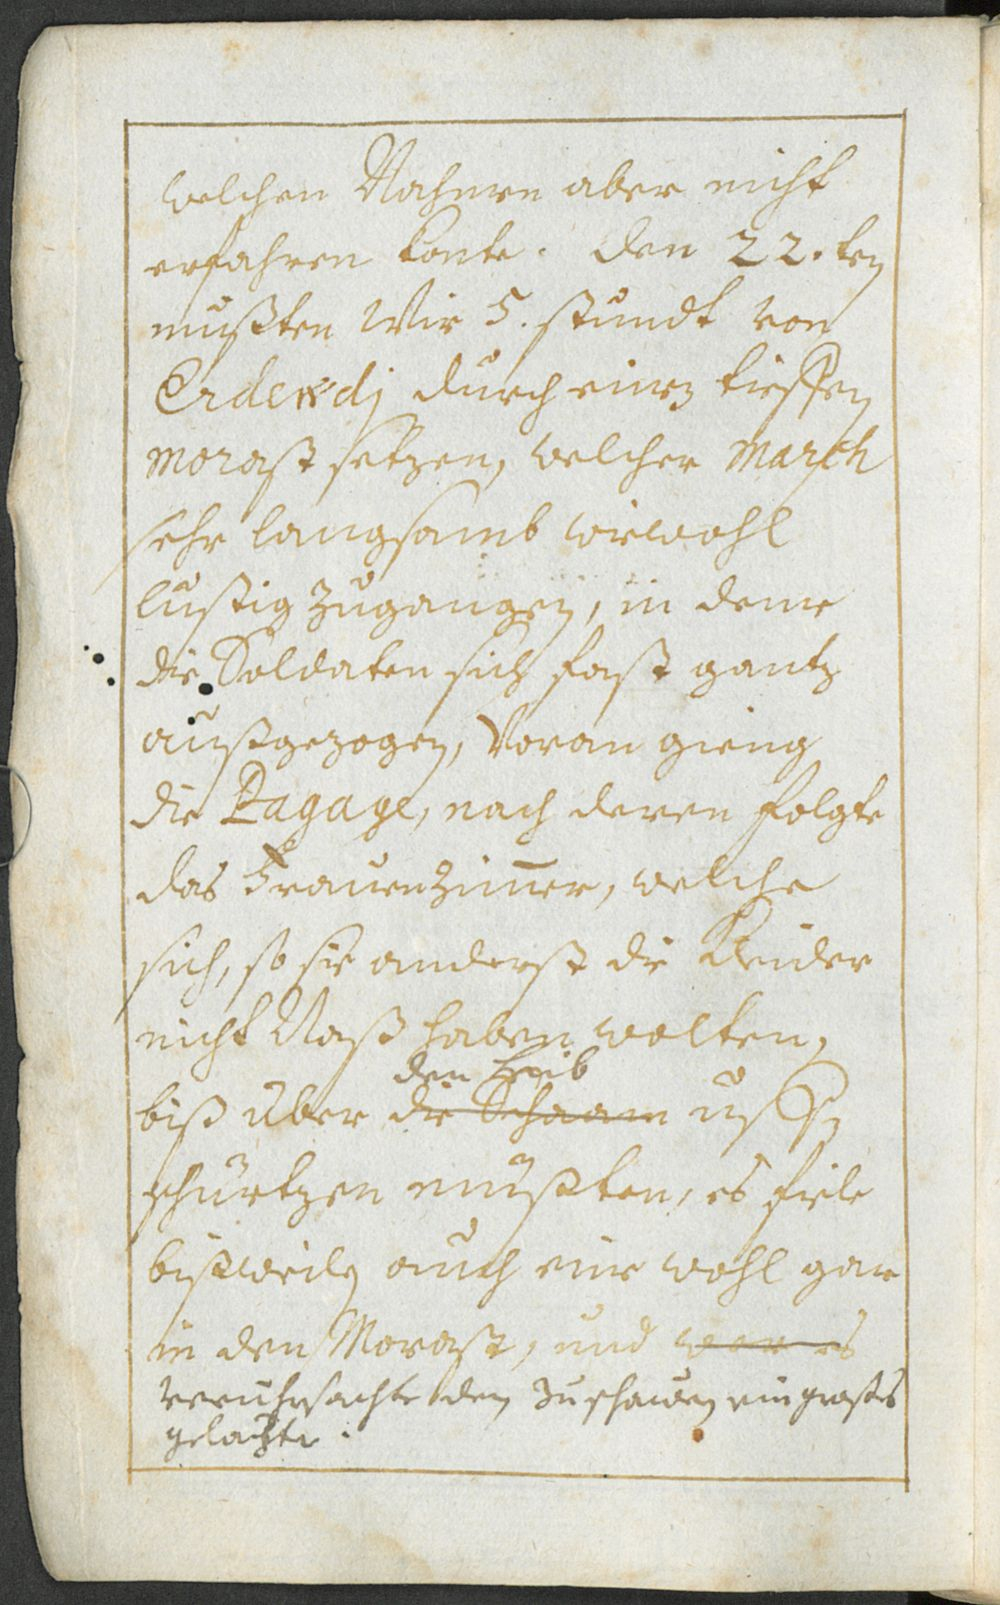 welchen Nahmen aber nicht
erfahren konte. den 22.ten
mußten Wir 5. stundt von
Erdewdj durch einen tieffen
morast setzen, welcher March
sehr langsamb wiewohl
lustig zugangen, in deme
die Soldaten sich fast gantz
außgezogen, Voran gieng
die Pagage, nach deren folgte
das Frauenzim̅er, welche
sich, so sie anderst die Kleider
nicht Naß haben wolten,
den Leib
biß über die Schaam
schürtzen müßten, es fiele
bißweilen auch eine wohl gar
in den Morast, und war es
veruhrsachte den zuschauern ein großes
gelächter.